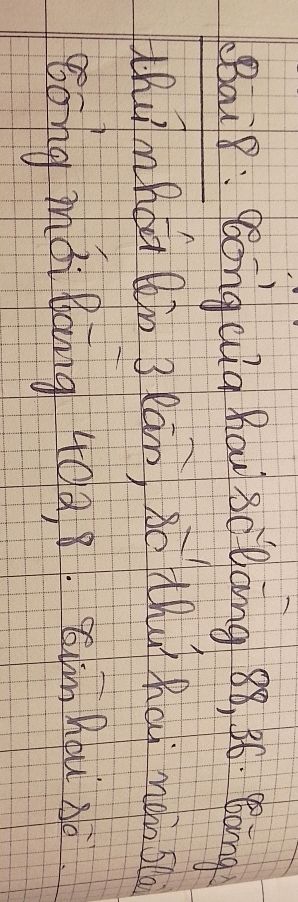 Bài 8: Tổng của hai số bằng 88,36. Tăng
thứ nhất lên 3 lần, số thứ hai nên 5 lần
tổng mới bằng 402,8. Tìm hai số.